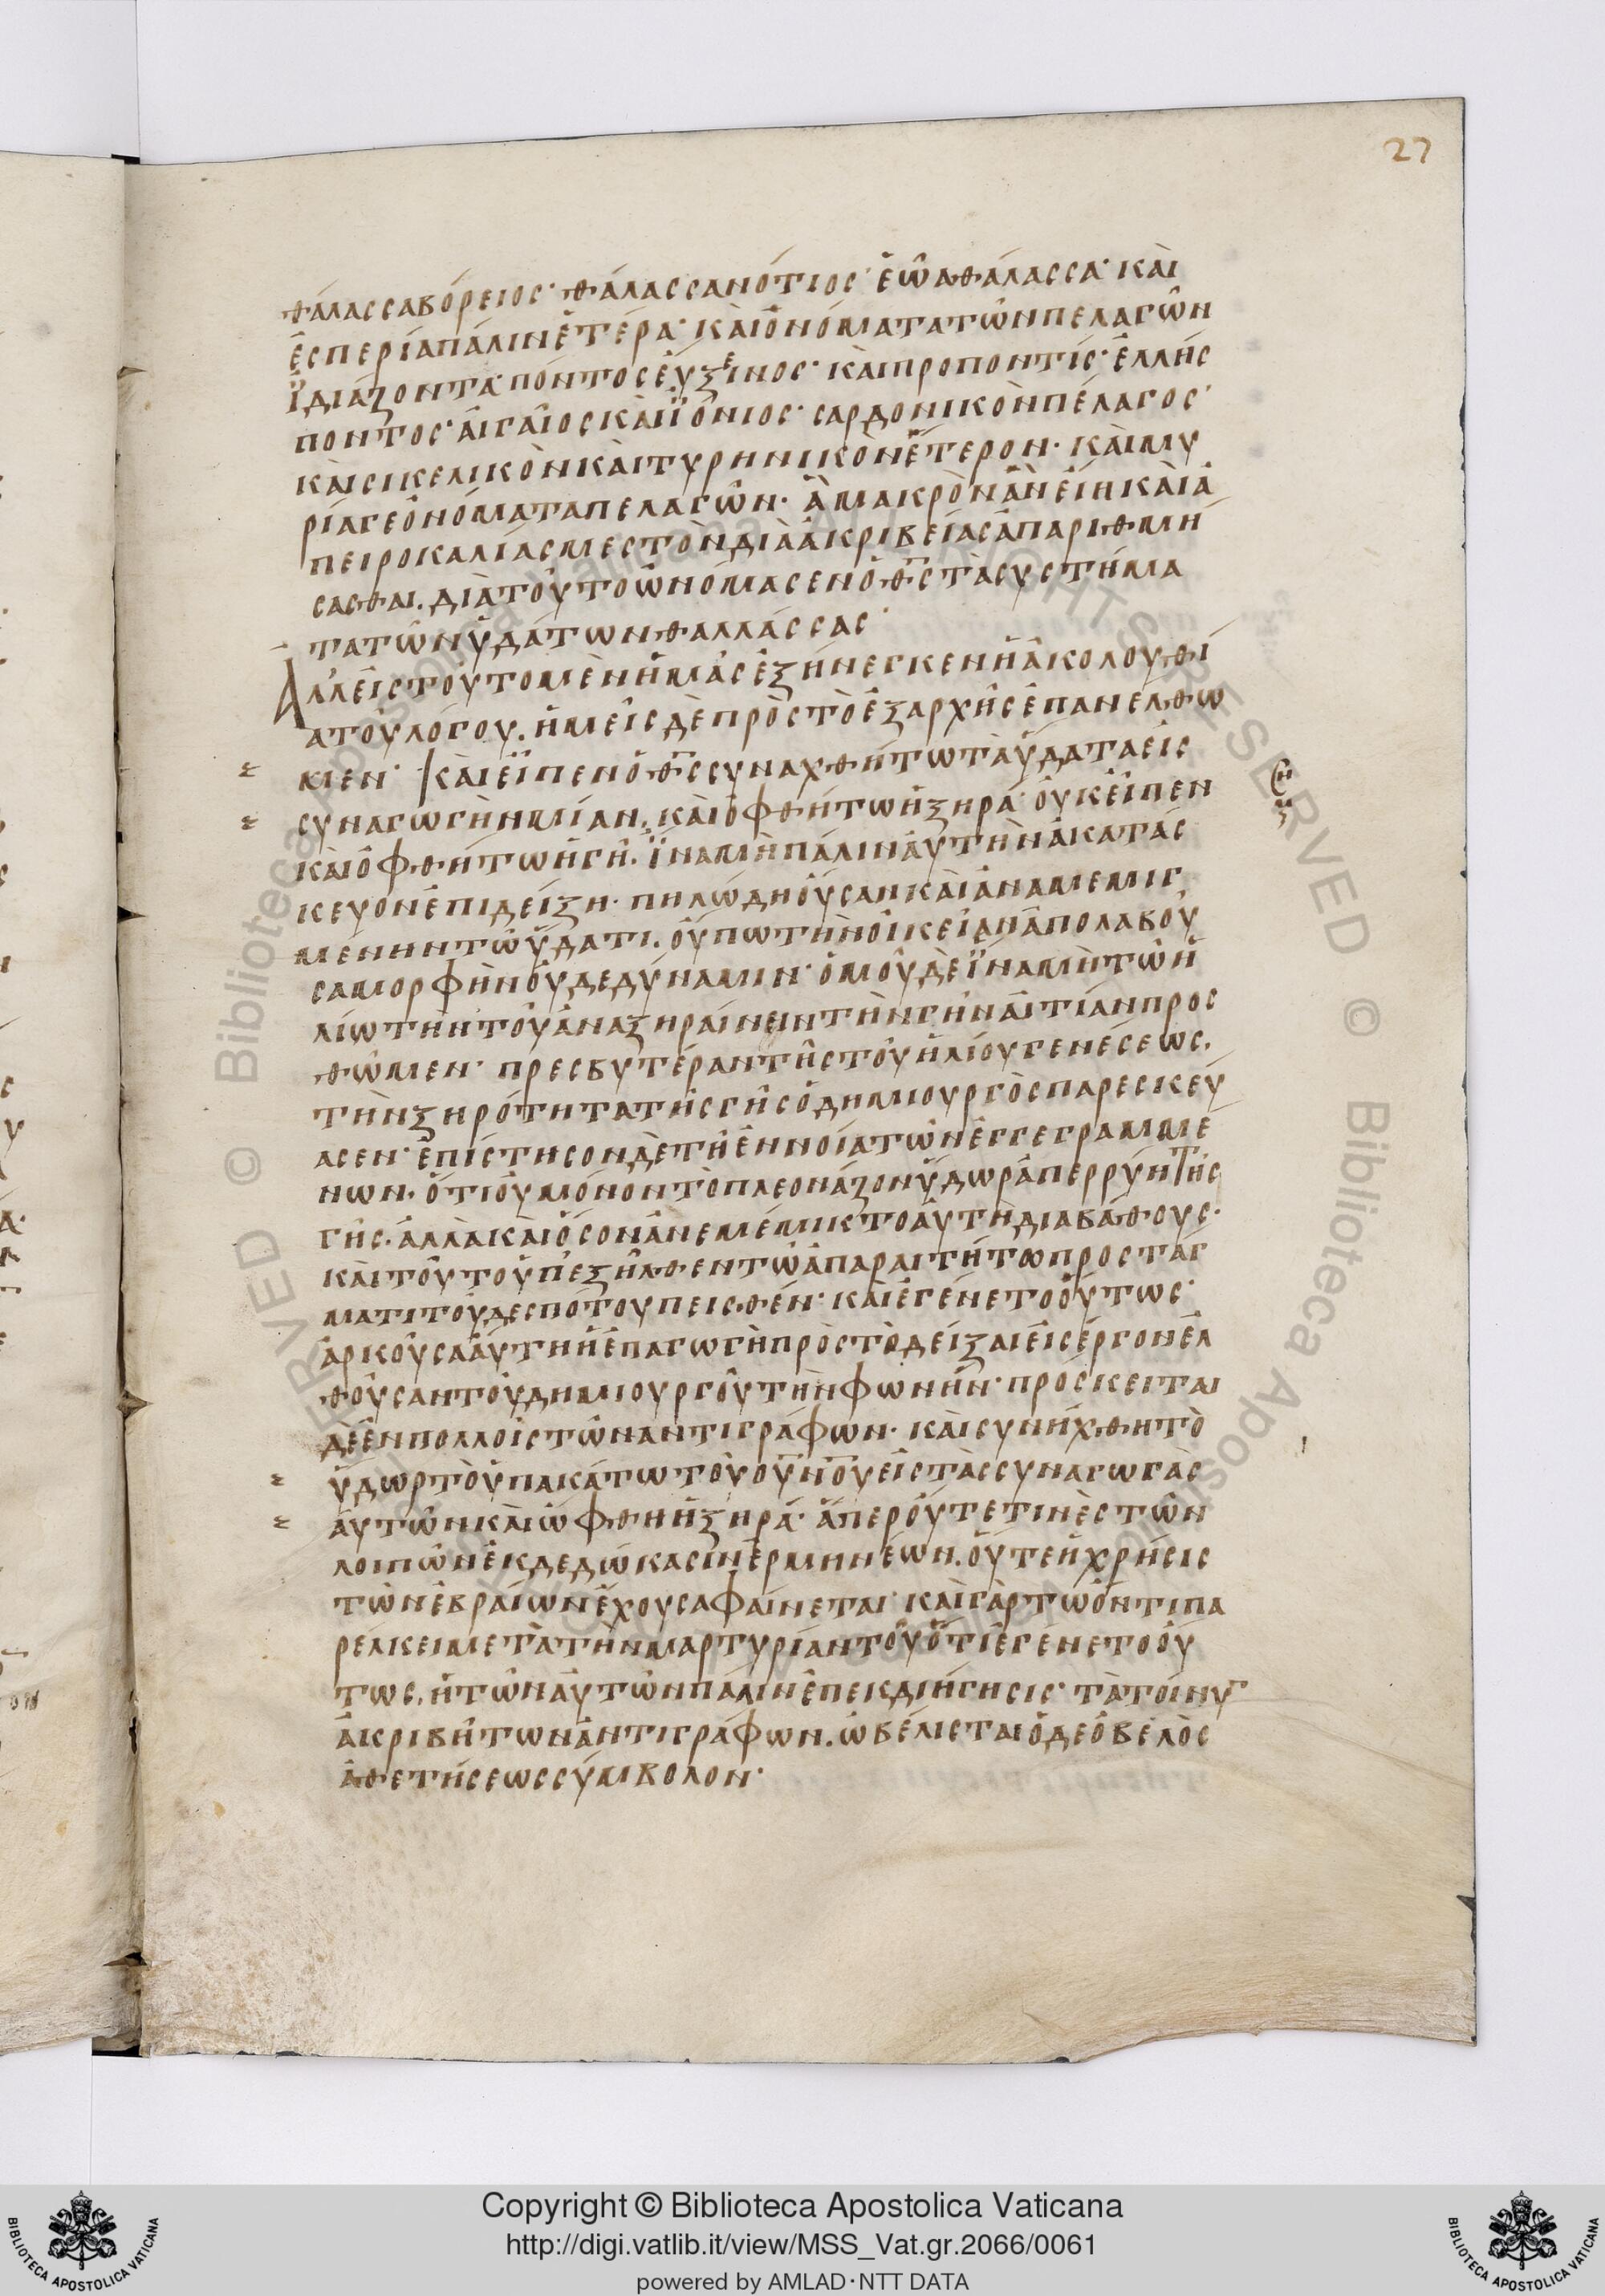 27
θάλασσα βόρειος· θάλασσα νότιος· ἑῴα θάλασσα· καὶ
ἑσπερία πάλιν ἑτέρα· καὶ ὀνόματα τῶν πελαγῶν
ἰδιάζοντα· πόντος εὔξεινος· καὶ προποντίς· ἑλλής
ποντος· αἰγαῖος καὶ ϊόνιος· σαρδονικὸν πέλαγος·
καὶ σικελικὸν καὶ τυρηνικὸν ἕτερον· καὶ μυ
ρία γε ὀνόματα πελαγῶν· ἃ μακρὸν ἂν εἴη καὶ ἀ
πειροκαλίας μεστὸν διὰ ἀκριβείας ἀπαριθμή
σασθαι. διὰ τοῦτο ὠνόμασεν ὁ θς τὰ συστήμα
τα τῶν ὑδάτων θαλλάσσας·
Ἀλλ' εἰς τοῦτο μὲν ἡμᾶς ἐξήνεγκεν ἡ ἀκολουθί
α τοῦ λόγου. ἡμεῖς δὲ πρὸς τὸ ἐξ ἀρχῆς ἐπανέλθω
μεν· καὶ εἶπεν ὁ θς συναχθήτω τὰ ὕδατα εἰς
συναγωγὴν μίαν. καὶ ὀφθήτω ἡ ξηρά· οὐκ εἶπεν
καὶ ὀφθήτω ἡ γῆ. ἵνα μὴ πάλιν αὐτὴν ἀκατάς
κευον ἐπιδείξη· πηλώδη οὖσαν καὶ ἀναμεμιγ
μένην τῶ ὕδατι. οὔπω τὴν οἰκείαν ἀπολαβοῦ
σα μορφὴν οὐδε δύναμιν· ὁμοῦ δὲ ἵνα μὴ τῶ ἡ
λίω τὴν τοῦ ἀναξηραίνειν τὴν γῆν αἰτίαν προς
θῶμεν· πρεσβυτέραν τῆς τοῦ ἡλίου γενέσεως.
τὴν ξηρότητα τῆς γῆς ὁ δημιουργὸς παρεσκεύ
ασεν· ἐπίστησον δὲ τῆ ἐννοία τῶν ἐγγεγραμμέ
νων. ὅτι οὐ μόνον τὸ πλεονάζον ὕδωρ ἀπερρύη τῆς
γῆς. ἀλλὰ καὶ ὅσον ἀνεμέμικτο αὐτῆ διὰ βάθους·
καὶ τοῦτο ὑπεξῆλθεν τῶ ἀπαραιτήτω προστάγ
ματι τοῦ δεσπότου πεισθέν· καὶ ἐγένετο οὕτως·
ἀρκοῦσα αὕτη ἡ ἐπαγωγὴ πρὸς τὸ δεῖξαι εἰς ἔργον ἐλ
θοῦσαν τοῦ δημιουργοῦ τὴν φωνήν· πρόσκειται
δὲ ἐν πολλοῖς τῶν αντιγράφων· καὶ συνήχθη τὸ
ὕδωρ τὸ ὑποκάτω τοῦ οὐνοῦ εἰς τὰς συναγωγὰς
αὐτῶν καὶ ὤφθη ἡ ξηρά· ἅπερ οὔτε τινὲς τῶν
λοιπῶν ἐκδεδώκασιν ἑρμηνέων. οὔτε ἡ χρῆσις
τῶν ἑβραίων ἔχουσα φαίνεται· καὶ γὰρ τῶ ὄντι πα
ρέλκει μετὰ τὴν μαρτυρίαν τοῦ ὅτι ἐγένετο οὕ
τως. ἡ τῶν αὐτῶν πάλιν ἐπεκδιήγησις· τὰ τοίνυν
ἀκριβῆ τῶν ἀντιγράφων. ὠβέλισται ὁ δε ὀβελὸς
ἀθετήσεως σύμβολον·
Copyright © Biblioteca Apostolica Vaticana
http://digi.vatlib.it/view/MSS_Vat.gr.2066/0061
powered by AMLAD·NTT DATA